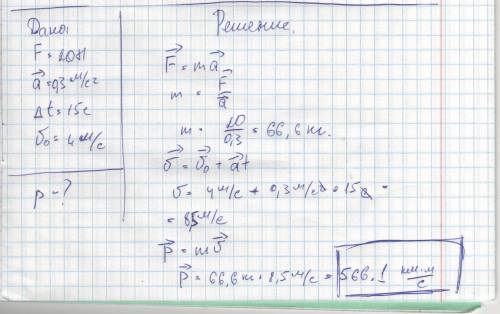 Дано:
F = 20H
a⃗ = 0,3 м/с²
Δt = 15 с
v₀ = 4 м/с
p - ?
Решение.
F⃗ = ma⃗
m = F⃗/a⃗
m = 20/0,3 = 66,6 кг.
v⃗ = v⃗₀ + a⃗t
v = 4 м/с + 0,3 м/с² · 15с =
= 8,5 м/с
p⃗ = mv⃗
p⃗ = 66,6 кг · 8,5 м/с = 566.1 кг·м/с